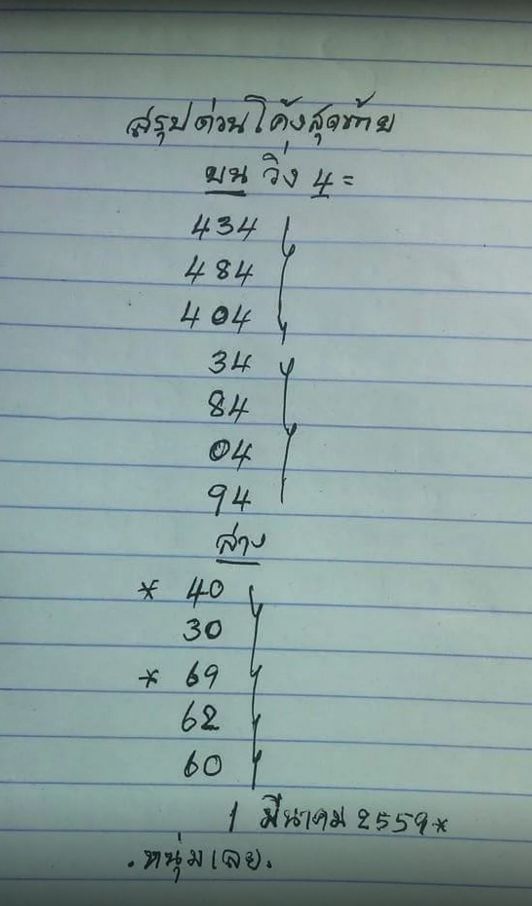 สรุปด่วนโค้งสุดท้าย
บน วิ่ง 4 =
434
484
404
34
84
04
94
ล่าง
* 40
30
* 69
62
60
1 มีนาคม 2559*
. หนุ่มเลย.